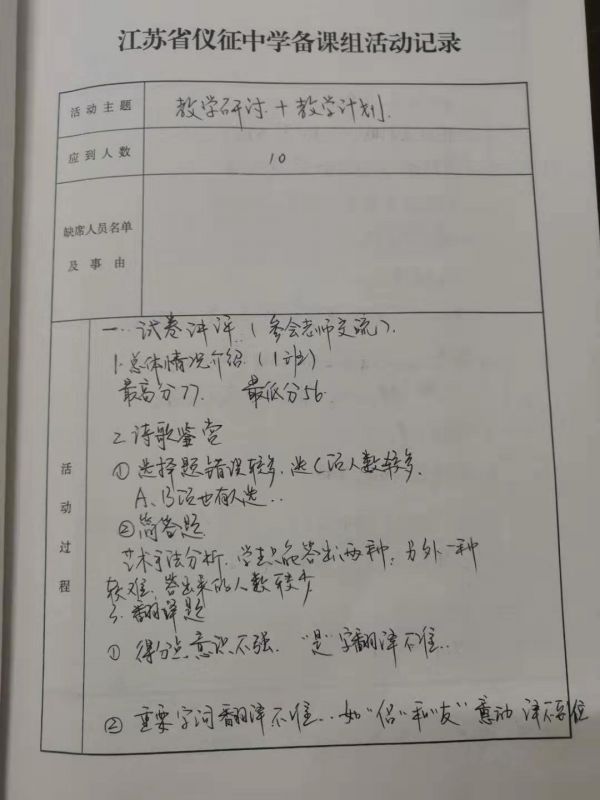 江苏省仪征中学备课组活动记录
活动主题
教学研讨+教学计划.
应到人数
10
缺席人员名单
及事由
活动过程
一.试卷讲评(参会老师交流).
1.总体情况介绍.(1班)
最高分77. 最低分56.
2.诗歌鉴赏
①选择题错误较多,选C项人数较多.
A、B项也有人选..
②简答题
艺术手法分析,学生只能答出两种;另外一种
较难,答出来的人数较少
3.翻译题
①得分点意识不强. "是"字翻译不准..
②重要字词翻译不准..如"侣"和"友"意动 译不到位